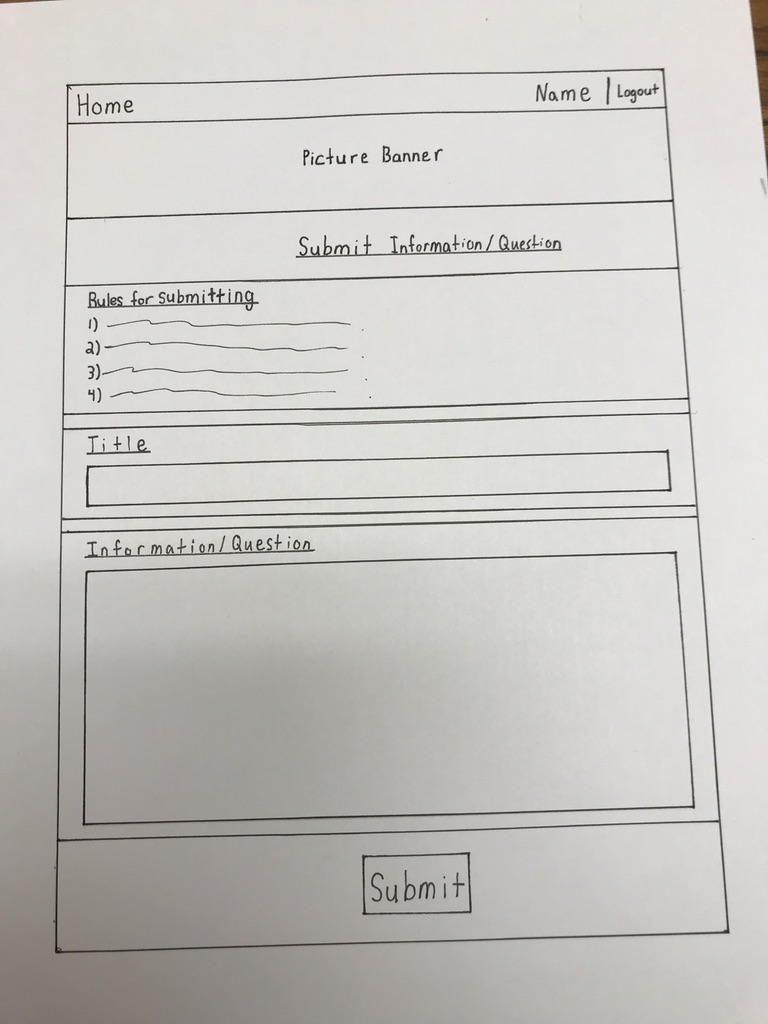 Home Name | Logout
Picture Banner
Submit Information/Question
Rules for submitting
1)
2)
3)
4)
Title
Information/Question
Submit